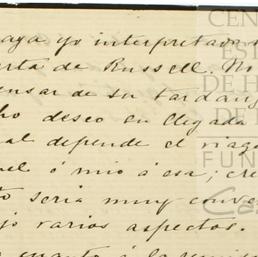 haya yo interpretado
carta de Russell. No
pensar de su tardanz
cho deseo su llegada
al depende el viage
el ó mio á esa; cre
to seria muy conve
jo varios aspectos.
cuanto á la
CEN
DE H
FUN